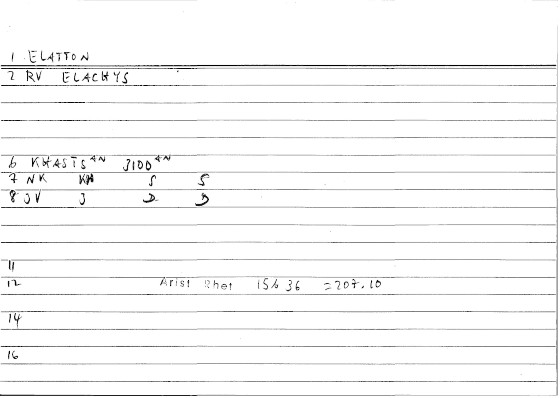 1 ELATTON
2 RV ELACHYS
6 KHASTS AN 3100 AN
7 NK KH S S
8 JV J D D
11
12 Arist Rhet 156 36 =207.10
14
16